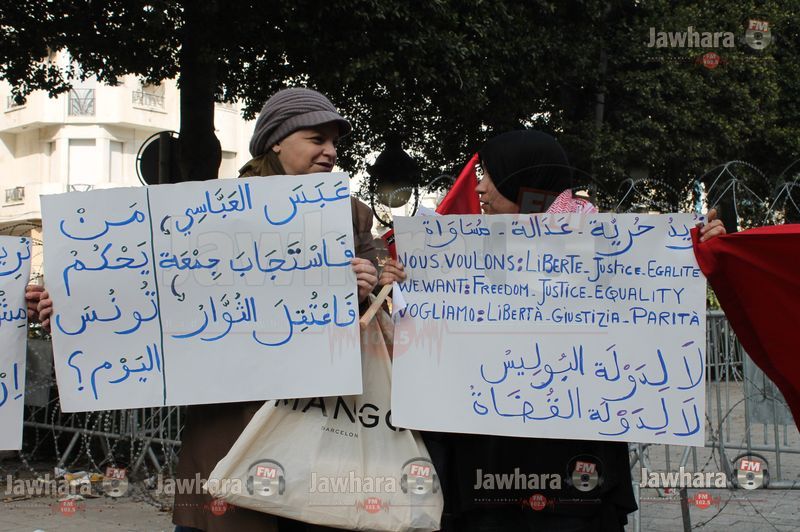 عَبَسَ العَبَّاسِي،
فَاسْتَجَابَ جِمْعَة،
فَاعْتُقِلَ الثُّوَّارُ
مَنْ
يَحْكُمُ
تُونسَ
اليَوْم؟
نُريدُ حُريَّة - عَدَالة - مُسَاوَاة
NOUS VOULONS: LiBERTE - JUSTICE - EGALITE
WE WANT: FREEDOM - JUSTICE - EQUALITY
VOGLIAMO: LIBERTÀ - GIUSTIZIA - PARITÀ
لَا لِدَوْلَة البُولِيسْ
لَا لِدَوْلَة القُضَاةْ
MANGO
BARCELON
Jawhara FM
102.5
Jawhara FM
102.5
Jawhara FM
102.5
Jawhara FM
102.5
Jawhara FM
102.5
Jawhara
102.5